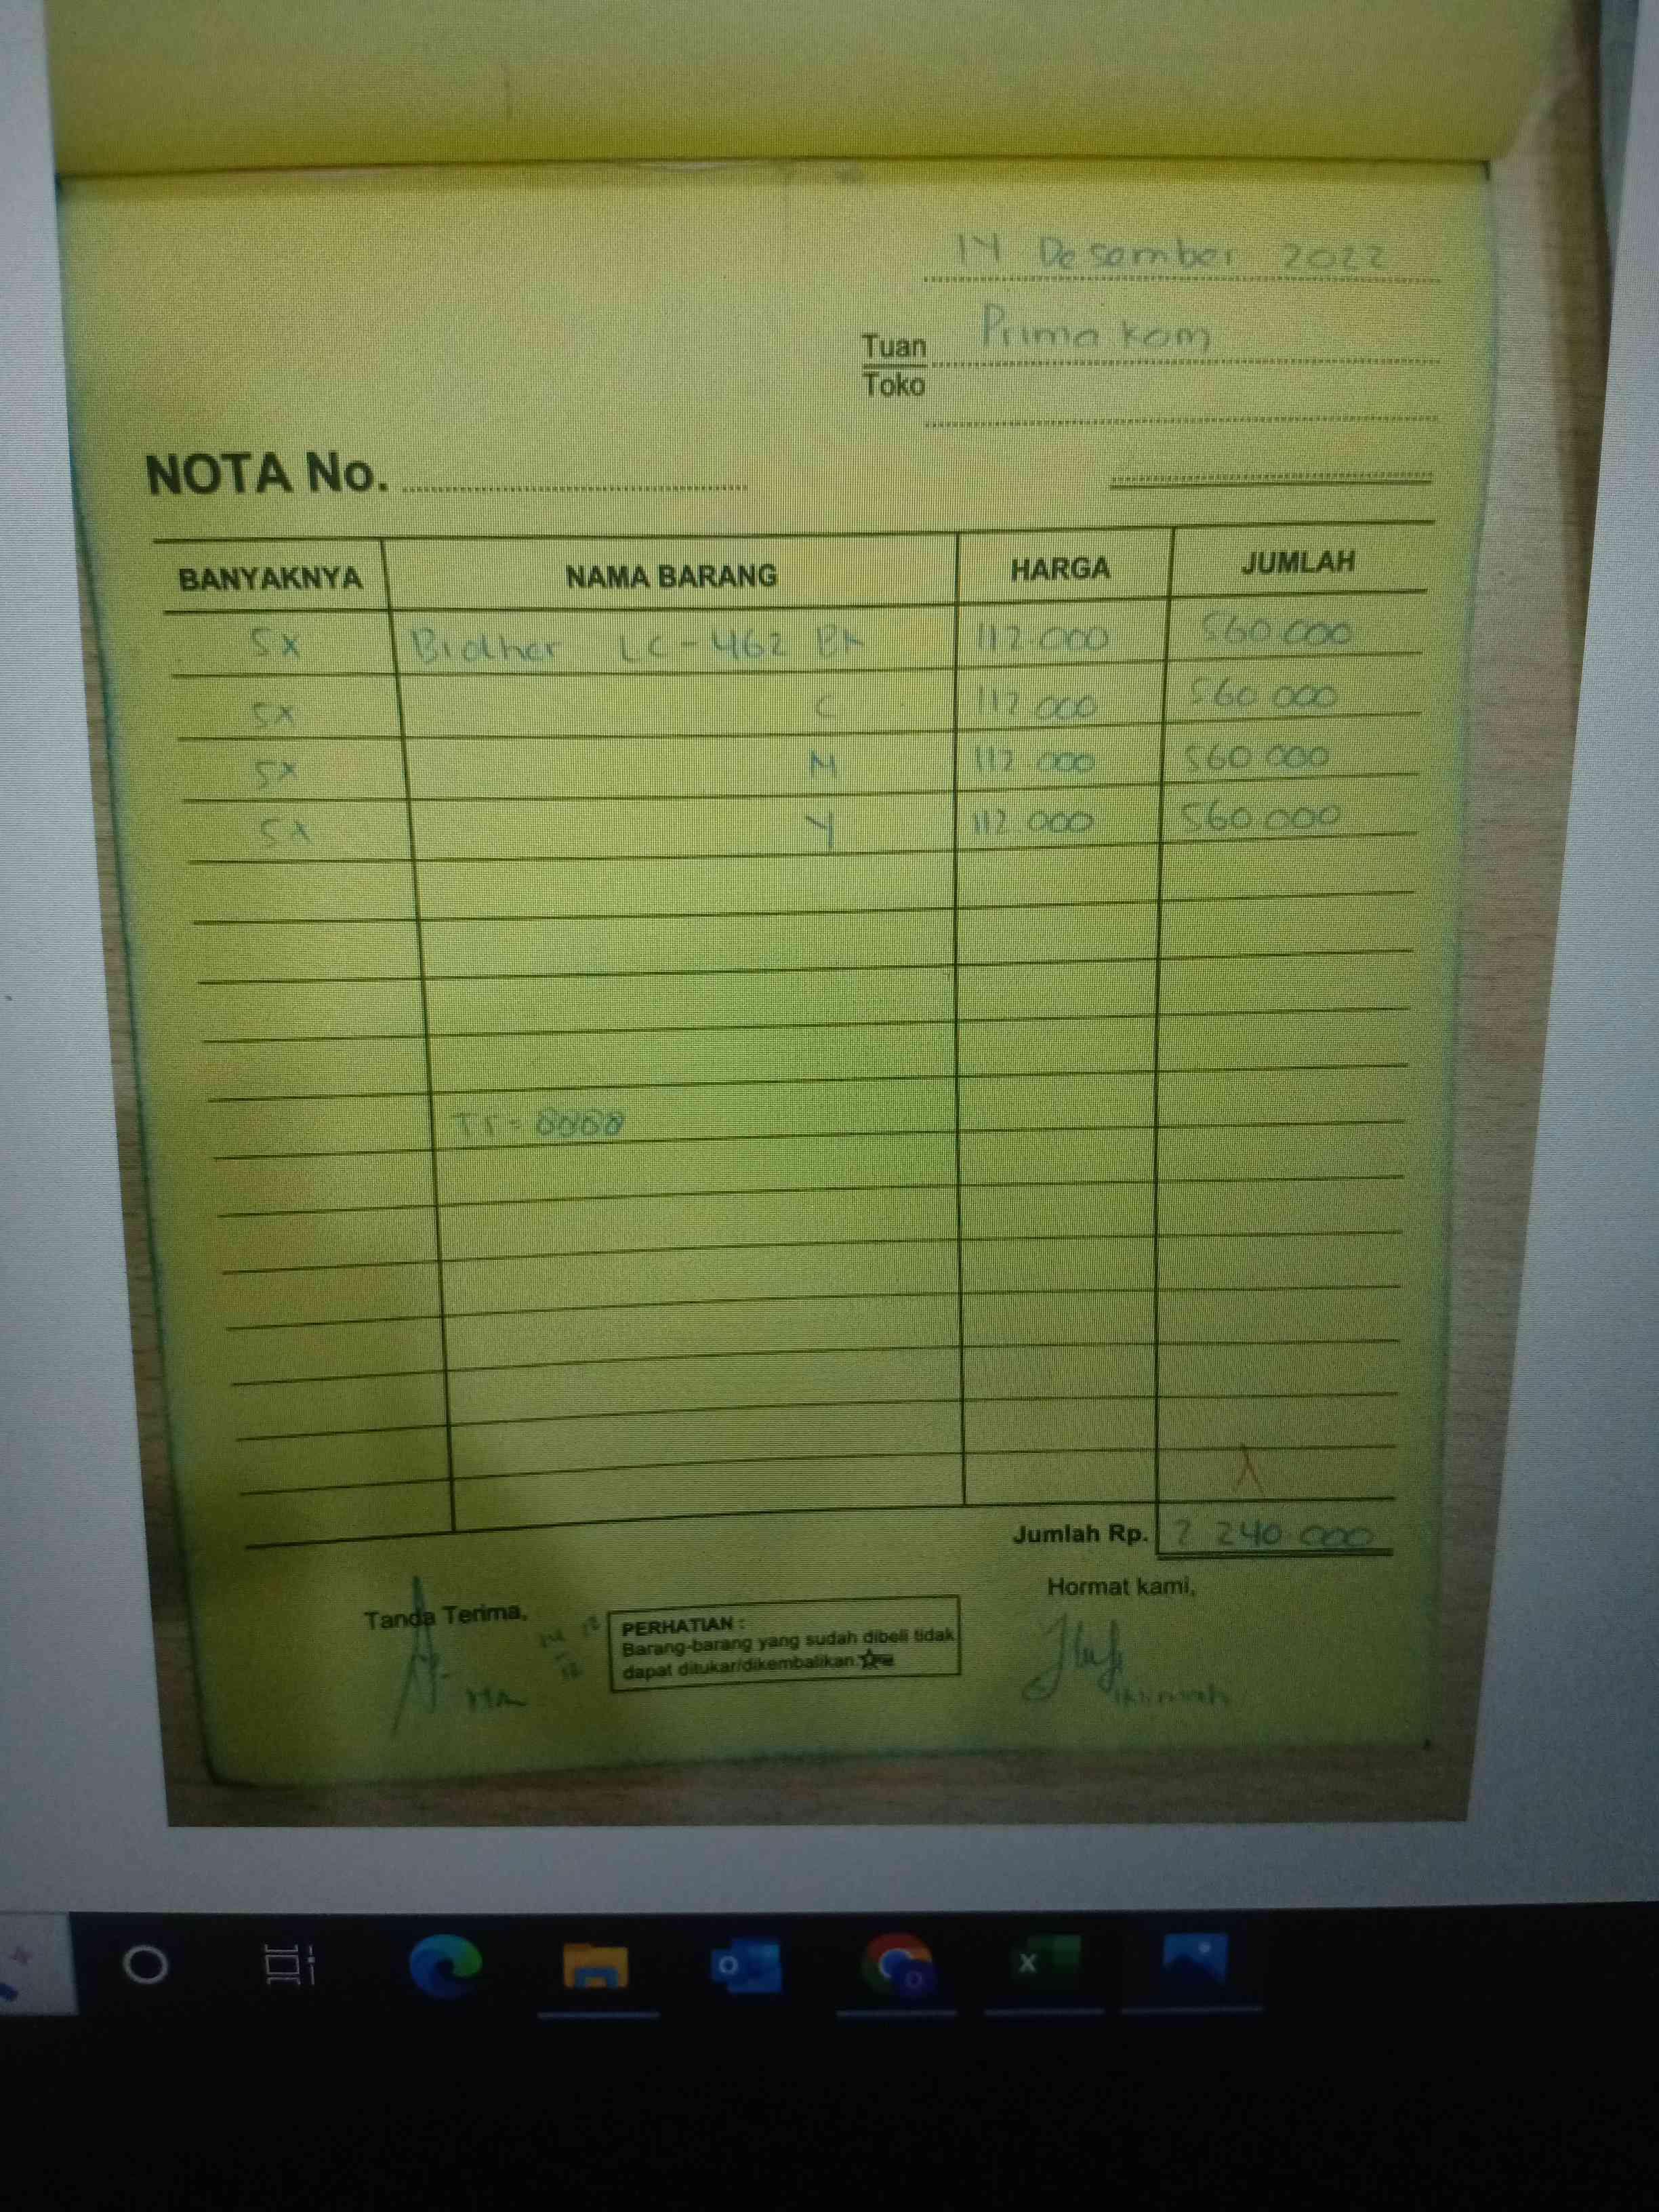 14 Desember 2022
Tuan Prima Kom
Toko
NOTA No.
BANYAKNYA NAMA BARANG HARGA JUMLAH
5x Brother LC-462 BK 112.000 560 000
5x C 112 000 560 000
5x M 112 000 560 000
5x Y 112 000 560 000
TF = 8888
Jumlah Rp. 2 240 000
Hormat kami,
Tanda Terima,
PERHATIAN :
Barang-barang yang sudah dibeli tidak
dapat ditukar/dikembalikan